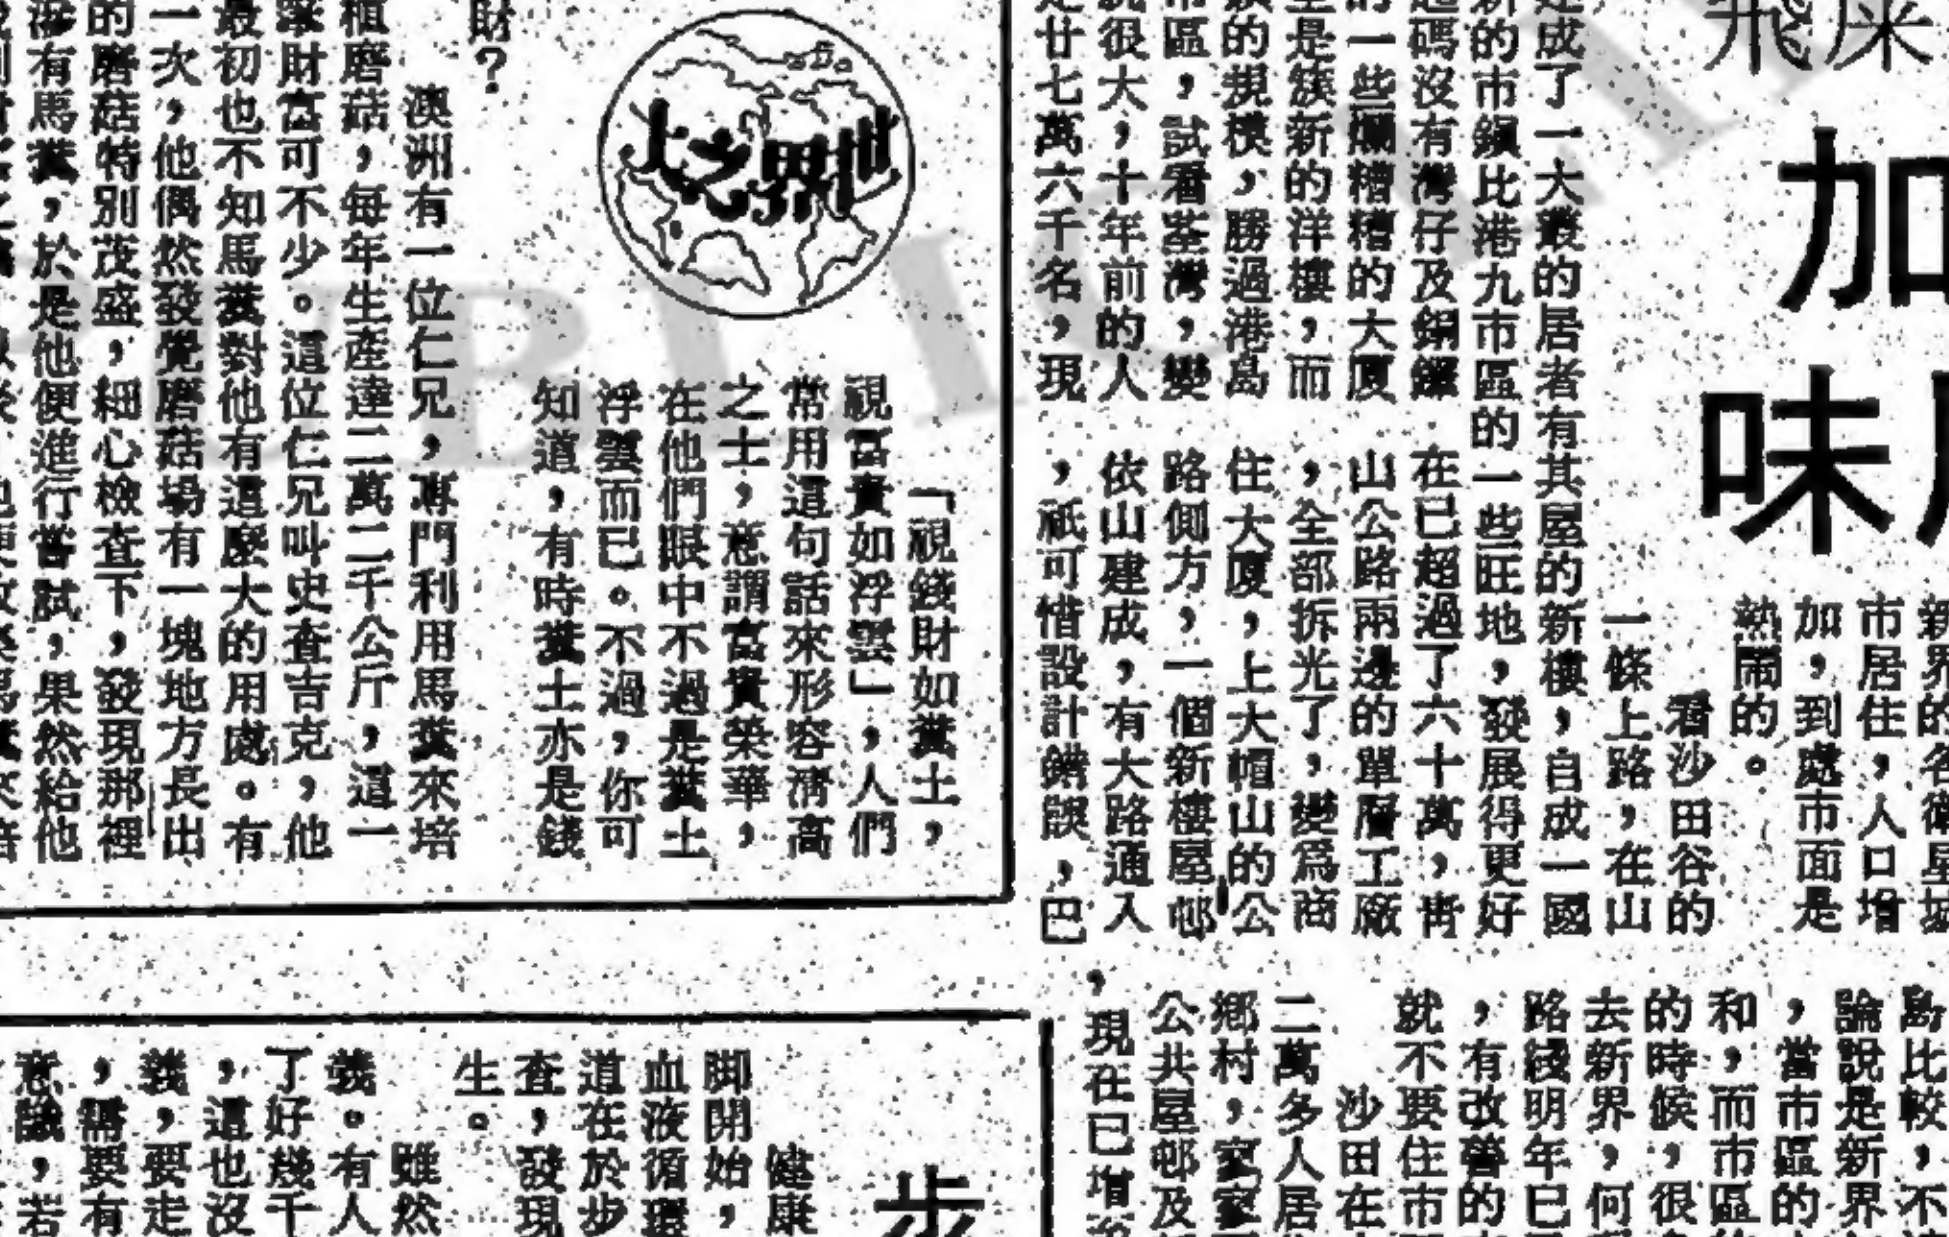 加
味
新界的各衛星城
市居住，人口增
加，到處市面是
熱鬧的。
看沙田谷的
一條上路，在山
建成了一大叢的居者有其屋的新樓，自成一國
新的市鎮比港九市區的一些旺地，發展得更好
起碼沒有灣仔及銅鑼
的一些爛糟糟的大厦
全是簇新的洋樓，而
的規模，勝過港島
市區，試看荃灣，變
就很大，十年前的人
是廿七萬六千名，現
在已超過了六十萬，青
山公路兩邊的單層工廠
，全部拆光了，變爲商
住大厦，上大帽山的公
路側方，一個新樓屋邨
依山建成，有大路通入
，祇可惜設計錯誤，巴
世界之上
「視錢財如糞土，
視富貴如浮雲」，人們
常用這句話來形容清高
之士，意謂富貴榮華，
在他們眼中不過是糞土
浮雲而已。不過，你可
知道，有時糞土亦是錢
財？
澳洲有一位仁兄，專門利用馬糞來培
植磨菇，每年生產達二萬二千公斤，這一
財富可不少。這位仁兄叫史查吉克，他
最初也不知馬糞對他有這麽大的用處。有
一次，他偶然發覺磨菇場有一塊地方長出
的磨菇特別茂盛，細心檢查下，發現那裡
滲有馬糞，於是他便進行嘗試，果然給他
島比較，不
論說是新界
，當市區的
和，而市區
的時候，很
去新界，何
路綫明年已
，有改善的
就不要住市
沙田在
二萬多人居
鄉村，家家
公共屋邨及
，現在已增
步
健康
脚開始，
血液循環
道在於步
查，發現
生。
雖然
義。有人
了好幾千
，這也沒
義，要走
，需要有
意識，若
PUBLIC